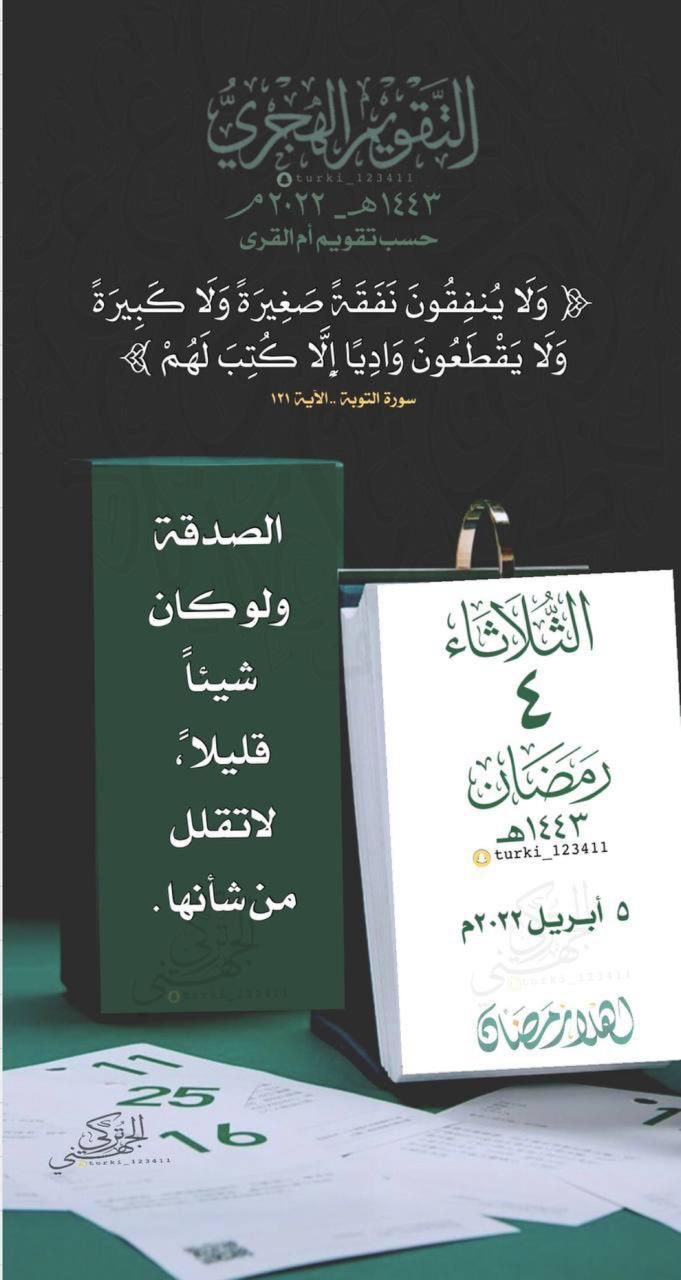 التَّقويم الهجري
turki_123411
١٤٤٣هـ ـ ٢٠٢٢م
حسب تقويم أم القرى
﴿ وَلَا يُنفِقُونَ نَفَقَةً صَغِيرَةً وَلَا كَبِيرَةً
وَلَا يَقْطَعُونَ وَادِيًا إِلَّا كُتِبَ لَهُمْ ﴾
سورة التوبة ..الآية ١٢١
الصدقة
ولو كان
شيئاً
قليلاً،
لاتقلل
من شأنها.
تركي الجهني
turki_123411
الثُّلَاثَاء
٤
رَمَضَان
١٤٤٣هـ
turki_123411
٥ أبريل ٢٠٢٢م
تركي الجهني
turki_123411
اهلا رمضان
11
25
16
تركي الجهني
turki_123411